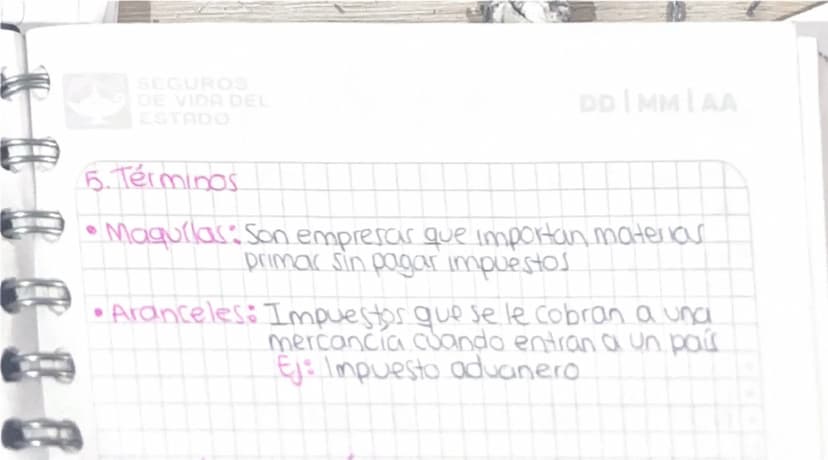 SEGUROS
DE VIDA DEL
ESTADO
DD | MM | AA
5. Términos
• Maquilas: Son empresas que importan materias
primas sin pagar impuestos
• Aranceles: Impuestos que se le cobran a una
mercancía cuando entran a un país
Ej: Impuesto aduanero